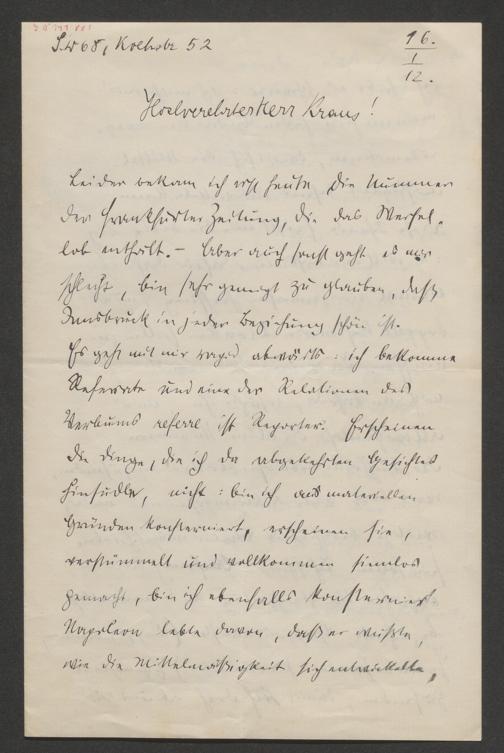 SW 68, Kochstr 52
16.
1
12.
Hochverehrter Herr Kraus!
Leider bekam ich erst heute die Nummer
der Frankfurter Zeitung, die das Werfel-
lob enthält. – Aber auch sonst geht es mir
schlecht, bin sehr geneigt zu glauben, daß
Innsbruck in jeder Beziehung schön ist.
Es geht mit mir rapid abwärts: ich bekomme
Referate und eine der Relationen des
Verbums referre ist Reporter. Erscheinen
die Dinge, die ich da abgekehrten Gesichtes
hinsudle, nicht: bin ich aus materiellen
Gründen konsterniert, erscheinen sie,
verstümmelt und vollkommen sinnlos
gemacht, bin ich ebenfalls konsterniert
Napoleon lebte davon, daß er wußte,
wie die Mittelmäßigkeit sich entwickelte,